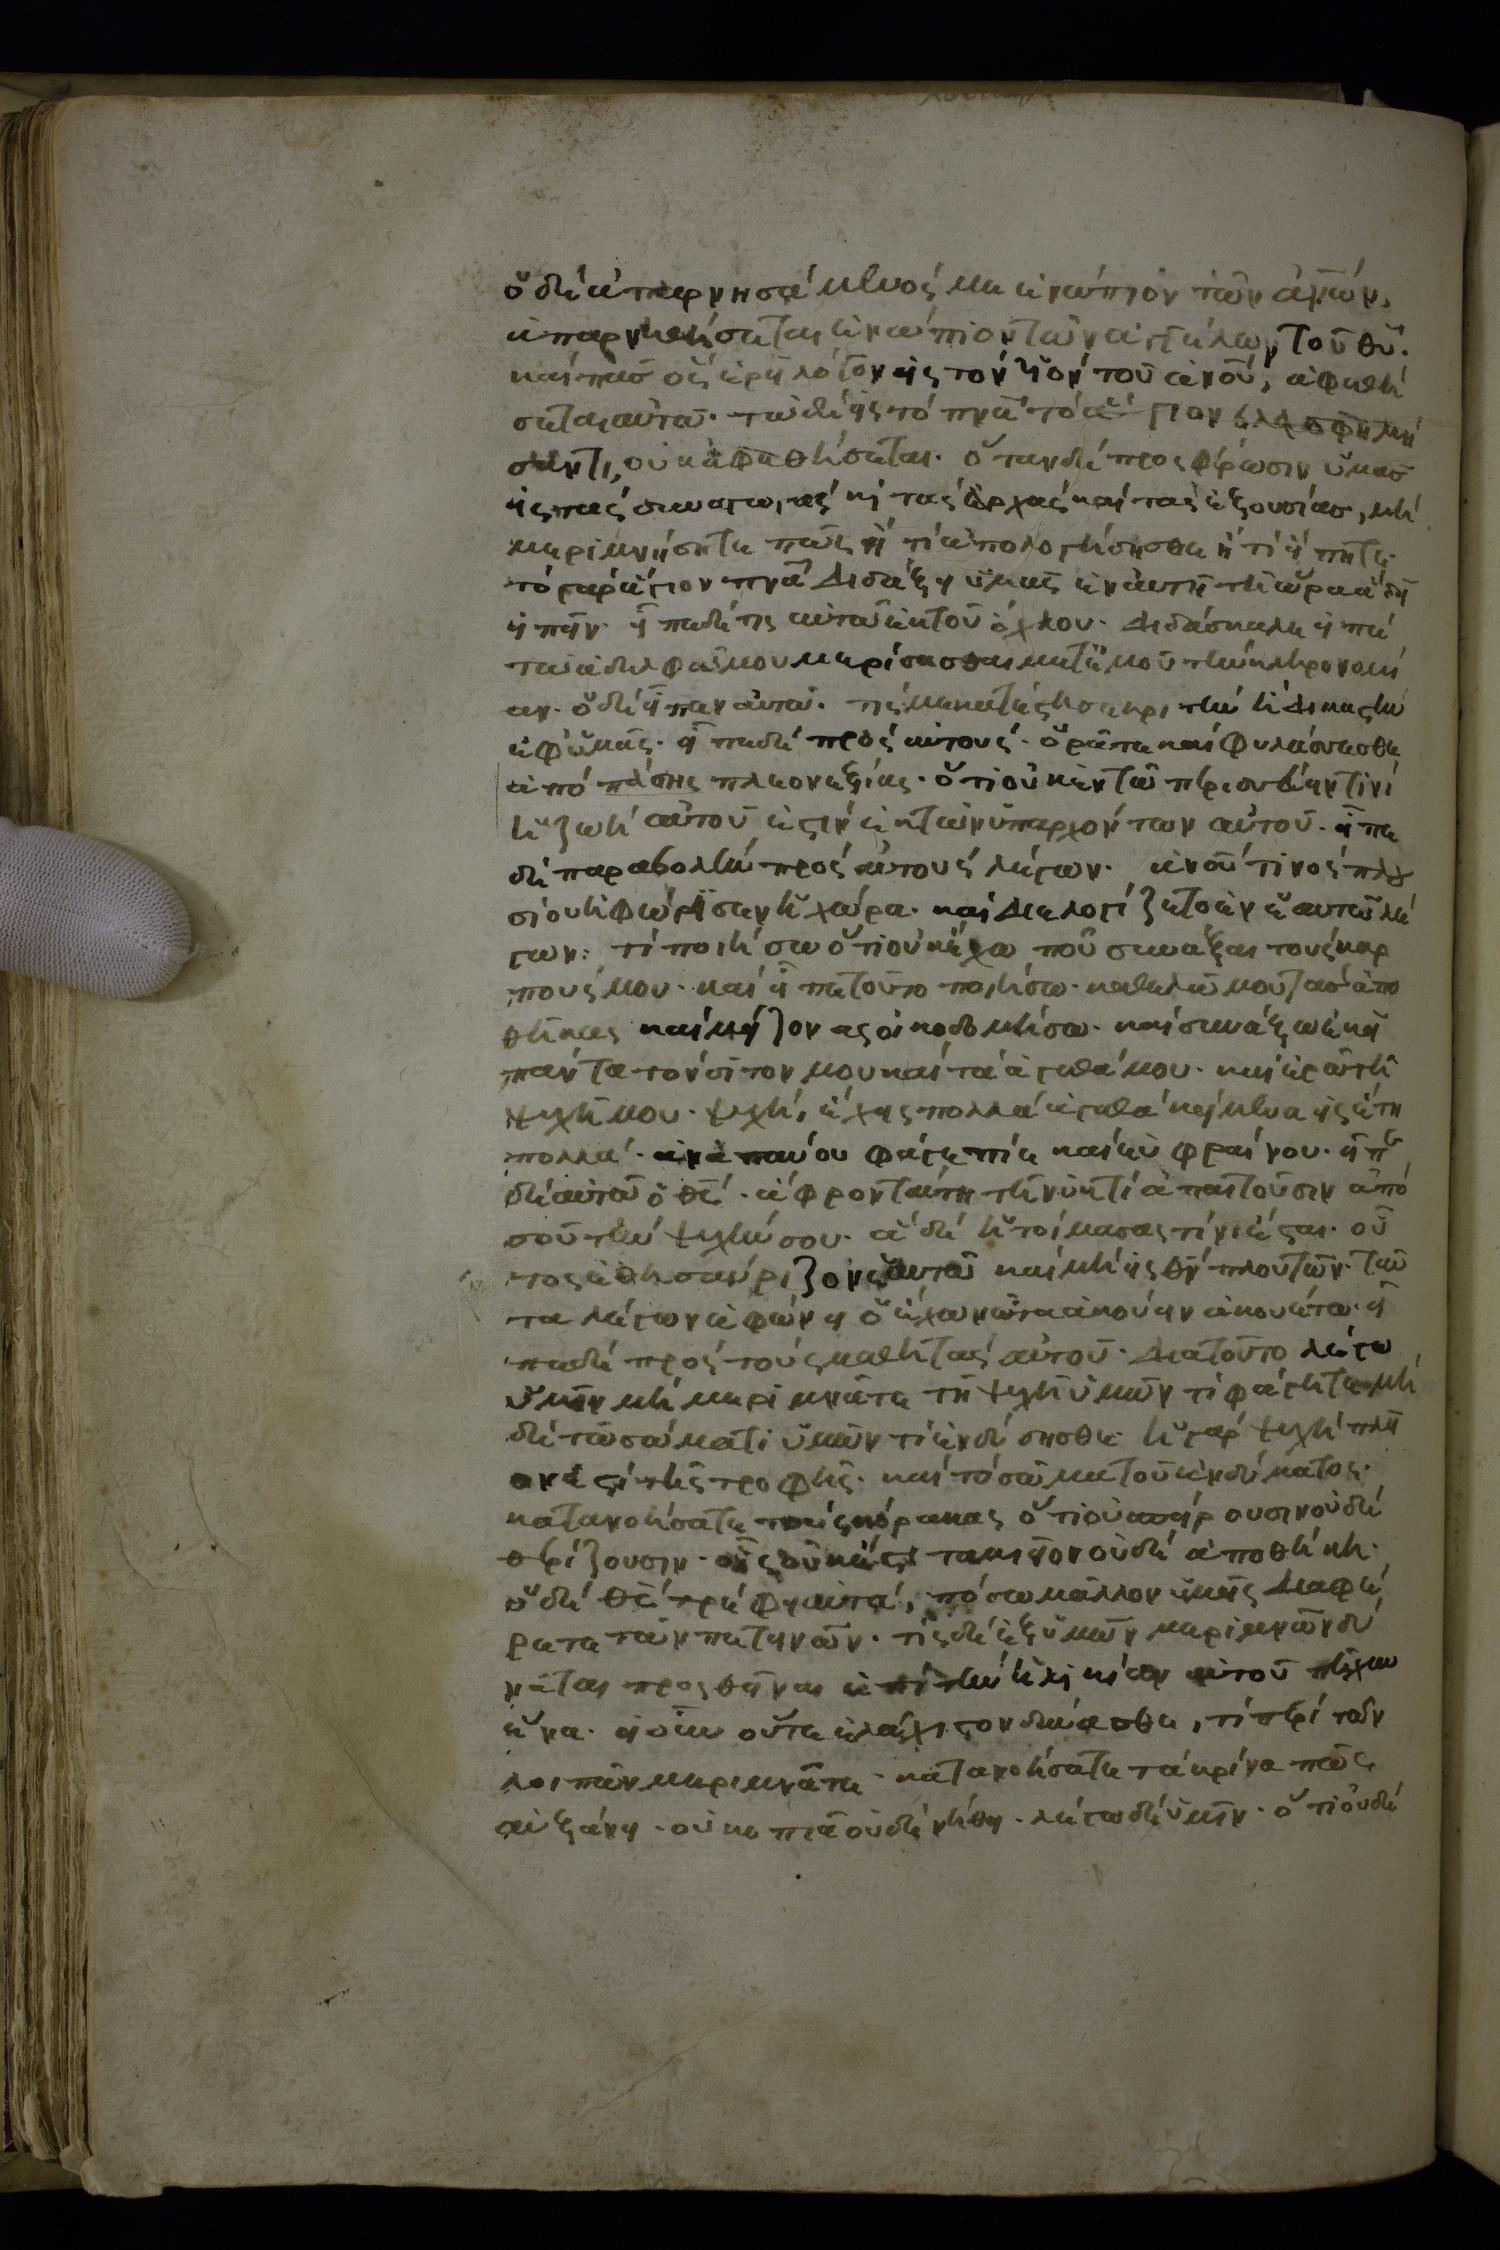 ὁ δὲ ἀπαρνησάμενός με ἐνώπιον τῶν ἀν̅ων,
ἀπαρνηθήσεται ἐνώπιον τῶν ἀγγέλων τοῦ θυ̅.
καὶ πᾶς ὃς ἐρεῖ λόγον εἰς τὸν υἱὸν τοῦ ἀνου̅, ἀφεθή
σεται αὐτῶ. τῶ δὲ εἰς τὸ πνα̅ τὸ ἅγιον βλασφημή
σαντι, οὐκ ἀφεθήσεται. ὅταν δὲ προσφέρωσιν ὑμᾶς
εἰς τὰς συναγωγὰς κ̀ τὰς ἀρχὰς καὶ τὰς ἐξουσίας, μὴ
μεριμνήσητε πῶς ἢ τί ἀπολογήσησθε ἢ τί εἴπητε.
τὸ γὰρ ἅγιον πνα̅ διδάξει ὑμᾶς ἐν αὐτῆ τῆ ὥρα ἃ δεῖ
εἰπεῖν. εἶπε δέ τις αὐτῶ ἐκ τοῦ ὄχλου. διδάσκαλε εἰπὲ
τῶ ἀδελφῶ μου μερίσασθαι μετ' ἐμοῦ τὴν κληρονομί
αν. ὁ δὲ εἶπεν αὐτῶ. τίς με κατέστησε κριτὴν ἢ δικαστὴν
ἐφ' ὑμᾶς. εἶπε δὲ πρὸς αὐτούς. ὁρᾶτε καὶ φυλάσσεσθε
ἀπὸ πάσης πλεονεξίας. ὅτι οὐκ ἐν τῶ περισσεύειν τινὶ
ἡ ζωὴ αὐτοῦ ἐστὶν ἐκ τῶν ὑπαρχόντων αὐτοῦ. εἶπε
δὲ παραβολὴν πρὸς αὐτοὺς λέγων. ἀνου̅ τινὸς πλου
σίου ηὐφόρησεν ἡ χώρα. καὶ διελογίζετο ἐν ἑαυτῶ λέ
γων. τί ποιήσω ὅτι οὐκ ἔχω ποῦ συνάξαι τοὺς καρ
πούς μου. καὶ εἶπε τοῦτο ποιήσω. καθελῶ μου τὰς ἀπο
θήκας καὶ μείζονας οἰκοδομήσω. καὶ συνάξω ἐκεῖ
πάντα τὸν σῖτον μου καὶ τὰ ἀγαθά μου. καὶ ἐρῶ τῆ
ψυχῆ μου. ψυχή, ἔχεις πολλὰ ἀγαθὰ κείμενα εἰς ἔτη
πολλά. ἀναπαύου φάγε πίε καὶ εὐφραίνου. εἶπε
δὲ αὐτῶ ὁ θς̅. ἄφρον ταύτη τῆ νυκτὶ ἀπαιτοῦσιν ἀπὸ
σοῦ τὴν ψυχήν σου. ἃ δὲ ἡτοίμασας τίνι ἔσται. οὕ
τως ὁ θησαυρίζων ἑαυτῶ καὶ μὴ εἰς θν̅ πλουτῶν. ταῦ
τα λέγων ἐφώνει ὁ ἔχων ὦτα ἀκούειν ἀκουέτω. εἶ
πε δὲ πρὸς τοὺς μαθητὰς αὐτοῦ. διατοῦτο λέγω
ὑμῖν μὴ μεριμνᾶτε τῆ ψυχῆ ὑμῶν τί φάγητε. μη
δὲ τῶ σώματι ὑμῶν τί ἐνδύσησθε. ἡ γὰρ ψυχὴ πλεῖ
όν ἐστι τῆς τροφῆς. καὶ τὸ σῶμα τοῦ ἐνδύματος.
κατανοήσατε τοὺς κόρακας ὅτι οὐ σπείρουσιν οὐδὲ
θερίζουσιν. οἷς οὐκ ἔστι ταμεῖον οὐδὲ ἀποθήκη.
ὁ δὲ θς̅ τρέφει αὐτά, πόσω μᾶλλον ὑμεῖς διαφέ
ρετε τῶν πετεινῶν. τίς δὲ ἐξ ὑμῶν μεριμνῶν δύ
ναται προσθῆναι ἐπὶ τὴν ἡλικίαν αὐτοῦ πῆχυν
ἕνα. εἰ οὖν οὔτε ἐλάχιστον δύνασθε, τί περὶ τῶν
λοιπῶν μεριμνᾶτε. κατανοήσατε τὰ κρίνα πῶς
αὐξάνει. οὐ κοπιᾶ οὐδὲ νήθει. λέγω δὲ ὑμῖν. ὅτι οὐδὲ